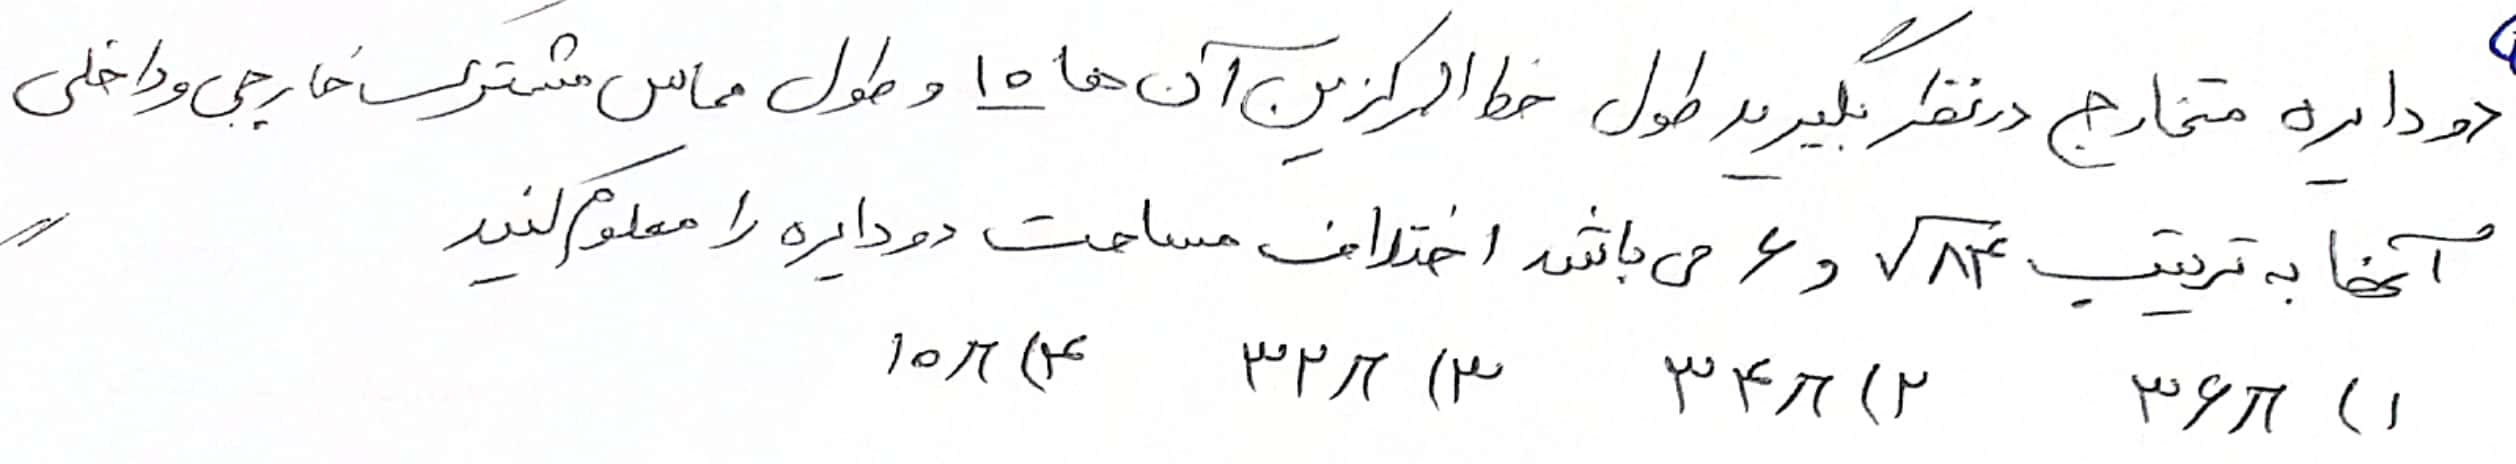 دو دایره متخارج درنظر بگیرید طول خط المرکزین آن ها ۱۰ و طول مماس مشترک خارجی و داخلی
آنها به ترتیب √۸۴ و ۶ می باشد اختلاف مساحت دو دایره را معلوم کنید
۱) ۳۶π ۲) ۳۴π ۳) ۳۲π ۴) ۱۰π